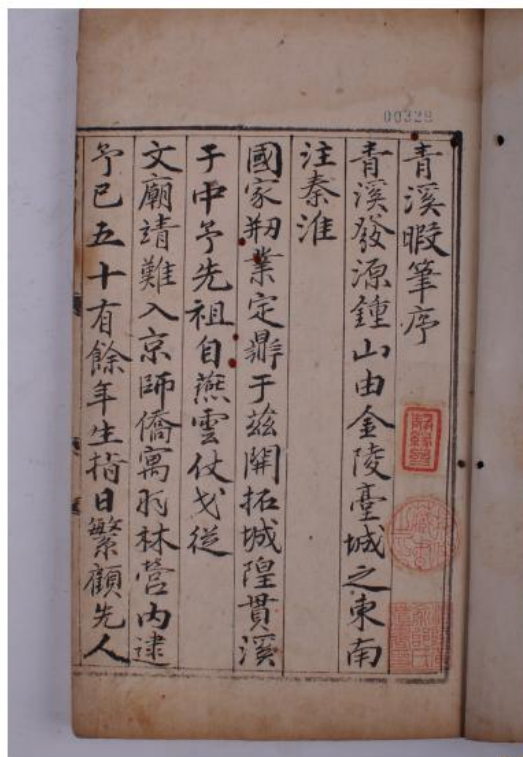 00328
青溪暇筆序
青溪發源鍾山由金陵臺城之東南
注秦淮
國家刱業定鼎于茲開拓城隍貫溪
于中予先祖自燕雲仗戈從
文廟靖難入京師僑寓羽林營內逮
予已五十有餘年生指日繁顧先人